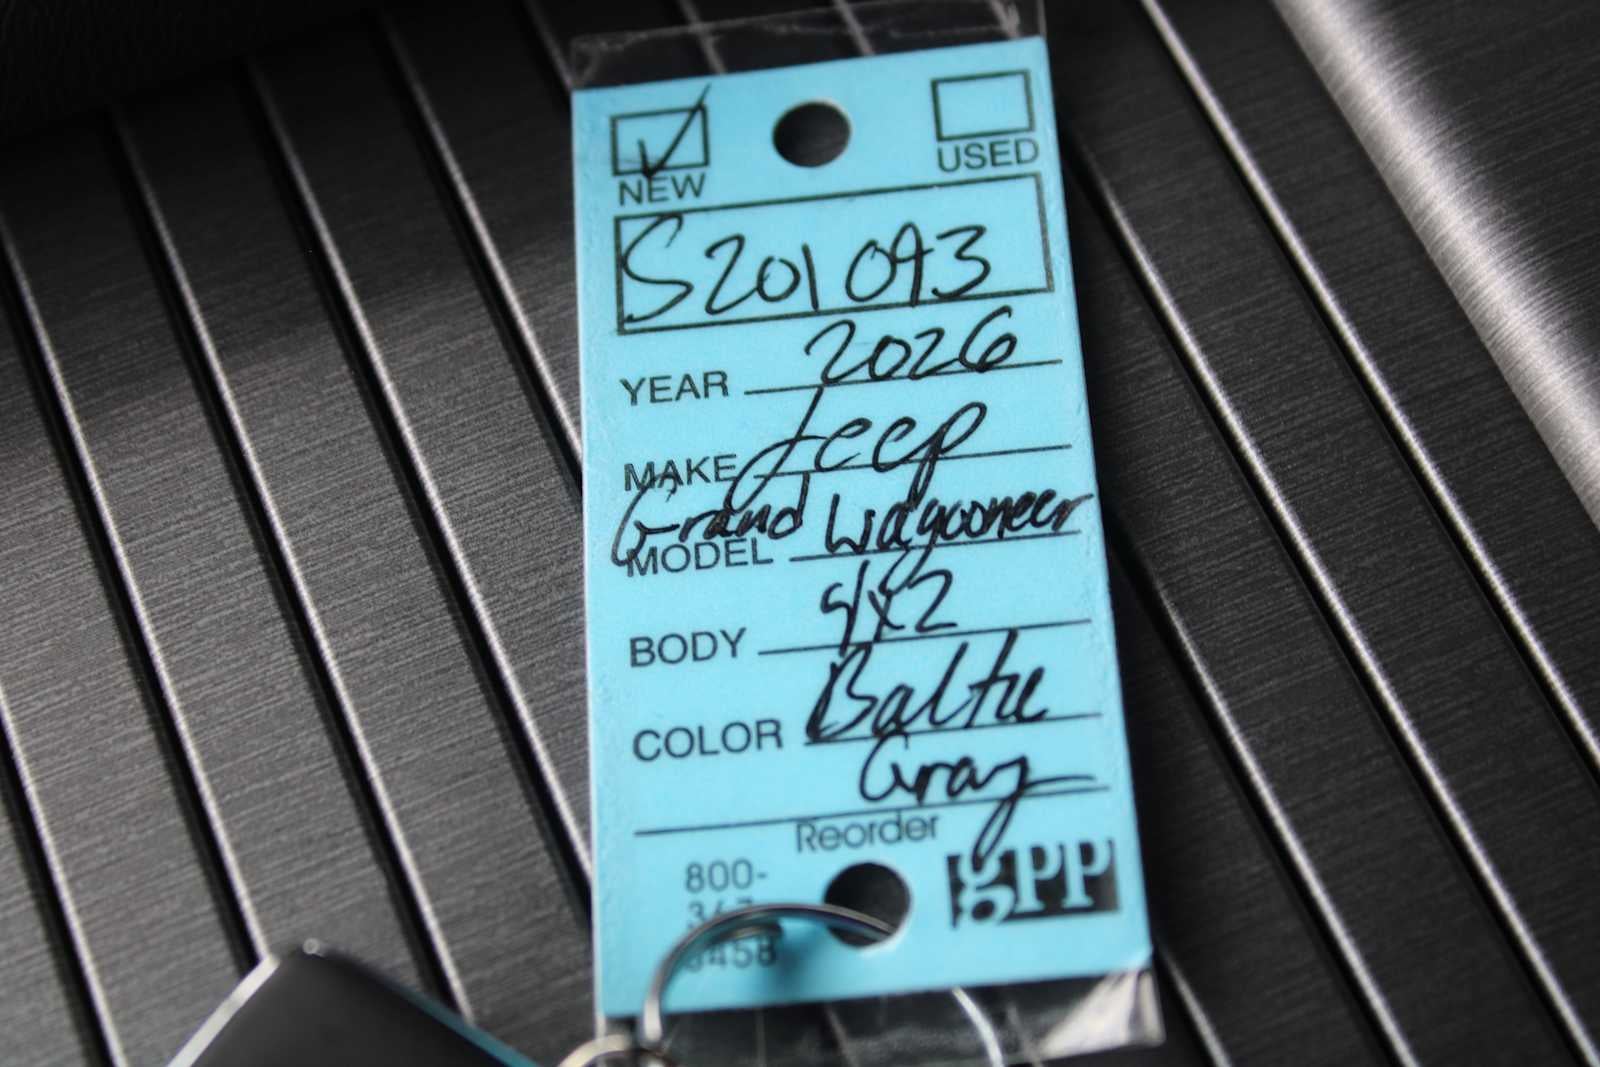 NEW
USED
S201093
YEAR 2026
MAKE Jeep
Grand Wagoneer
MODEL
BODY 4x2
COLOR Baltic
Gray
Reorder
800-
gPP